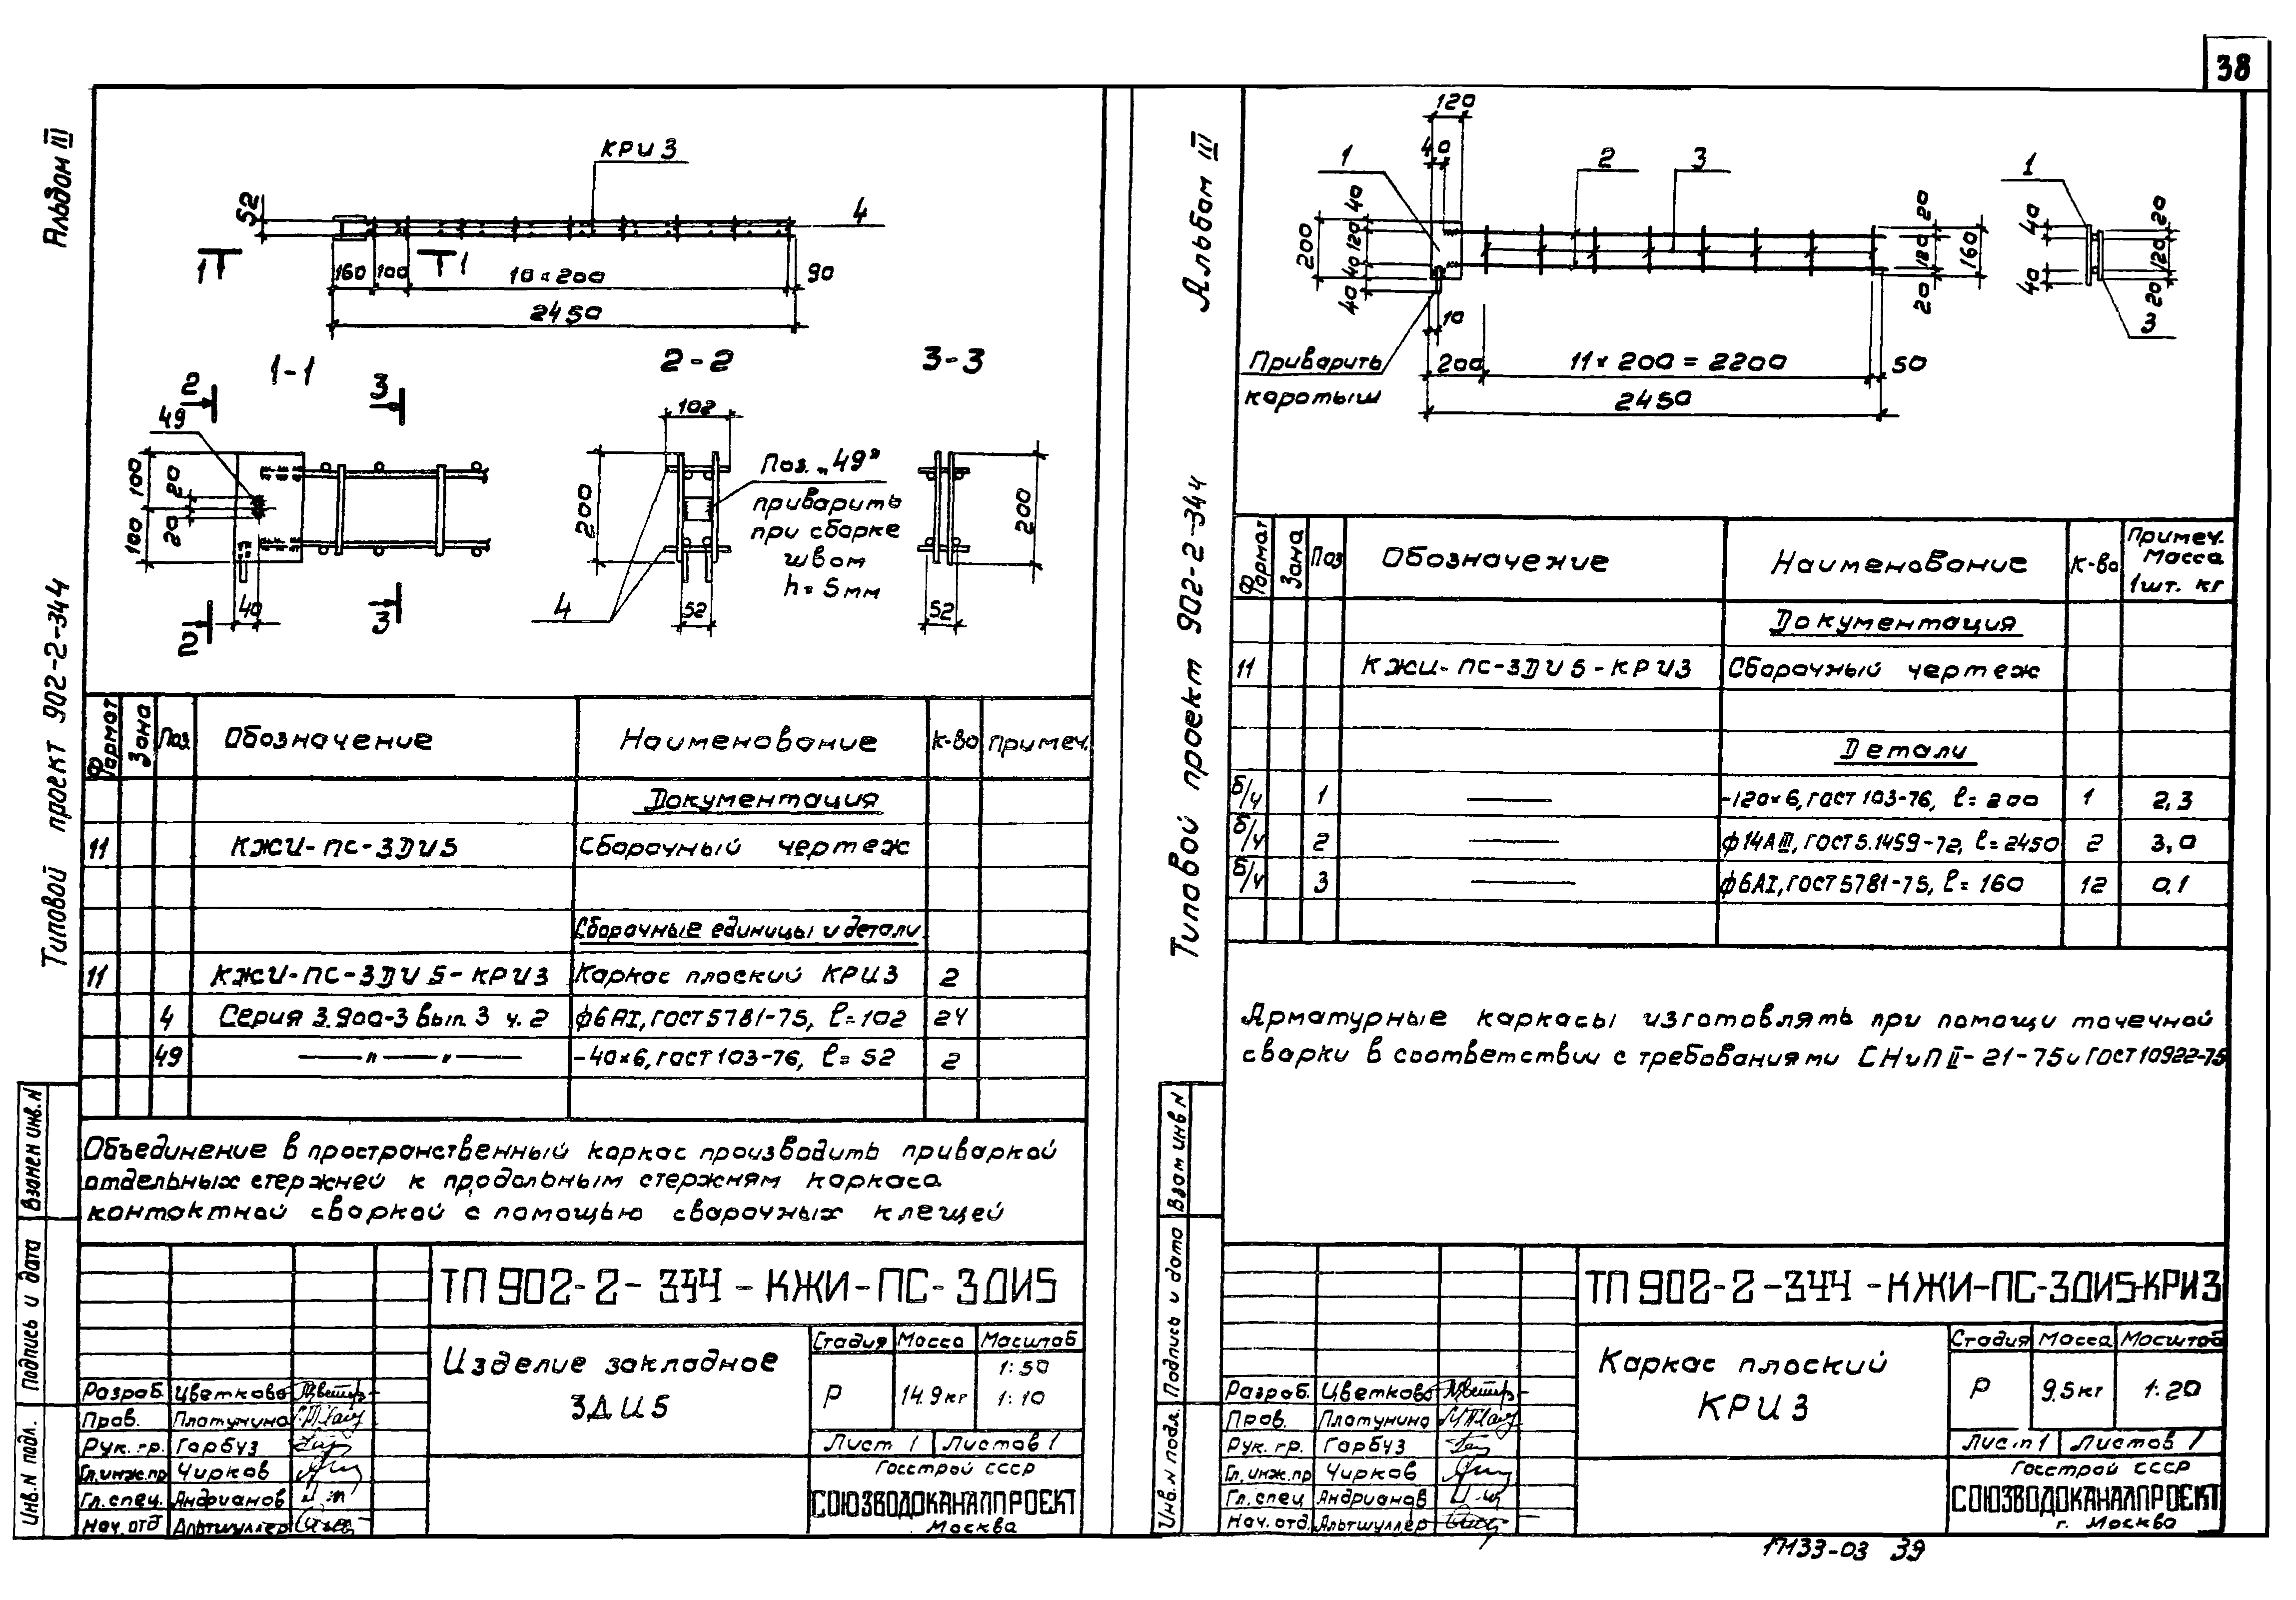 38
Альбом III
Типовой проект 902-2-344
КРИ3
4
52
1
1
160
100
10×200
90
2450
1-1
2
3
49
100
20
20
100
40
2
3
2-2
102
200
52
4
Поз. „49"
приварить
при сборке
швом
h = 5мм
3-3
200
52
Формат
Зона
Поз.
Обозначение
Наименование
К-во
Примеч.
Документация
11 КЖИ-ПС-3ДИ5 Сборочный чертеж
Сборочные единицы и детали
11 КЖИ-ПС-3ДИ5-КРИ3 Каркас плоский КРИ3 2
4 Серия 3.900-3 Вып. 3 ч. 2 ф6АI, ГОСТ 5781-75, ℓ=102 24
49 —"—"— -40×6, ГОСТ 103-76, ℓ= 52 2
Объединение в пространственный каркас производить приваркой
отдельных стержней к продольным стержням каркаса
контактной сваркой с помощью сварочных клещей
Взамен инв. N
Подпись и дата
Инв. N подл.
ТП 902-2-344-КЖИ-ПС-3ДИ5
Изделие закладное
3ДИ5
Стадия Масса Масштаб
Р 14.9кг 1:50
1:10
Лист 1 Листов 1
Госстрой СССР
СОЮЗВОДОКАНАЛПРОЕКТ
Москва
Разраб. Цветкова
Пров. Платунина
Рук. гр. Гарбуз
Гл. инж. пр Чирков
Гл. спец. Андрианов
Нач. отд Альтшуллер
Альбом III
Типовой проект 902-2-344
120
40
1
2
3
200
40
120
40
40
10
Приварить
коротыш
200
11×200=2200
50
2450
20
120
20
160
1
40
40
20
120
20
3
Формат
Зона
Поз
Обозначение
Наименование
К-во
Примеч.
Масса
1шт. кг
Документация
11 КЖИ-ПС-3ДИ5-КРИ3 Сборочный чертеж
Детали
б/ч 1 — -120×6, ГОСТ 103-76, ℓ= 200 1 2,3
б/ч 2 — ф14АIII, ГОСТ 5.1459-72, ℓ=2450 2 3,0
б/ч 3 — ф6АI, ГОСТ 5781-75, ℓ= 160 12 0,1
Арматурные каркасы изготовлять при помощи точечной
сварки в соответствии с требованиями СНиП II-21-75 и ГОСТ 10922-75
Взам инв N
Подпись и дата
Инв. N подл.
ТП 902-2-344-КЖИ-ПС-3ДИ5-КРИ3
Каркас плоский
КРИ3
Стадия Масса Масштаб
Р 9.5кг 1:20
Лист 1 Листов 1
Госстрой СССР
СОЮЗВОДОКАНАЛПРОЕКТ
г. Москва
Разраб. Цветкова
Пров. Платунина
Рук. гр. Гарбуз
Гл. инж. пр Чирков
Гл. спец Андрианов
Нач. отд. Альтшуллер
17133-03 39